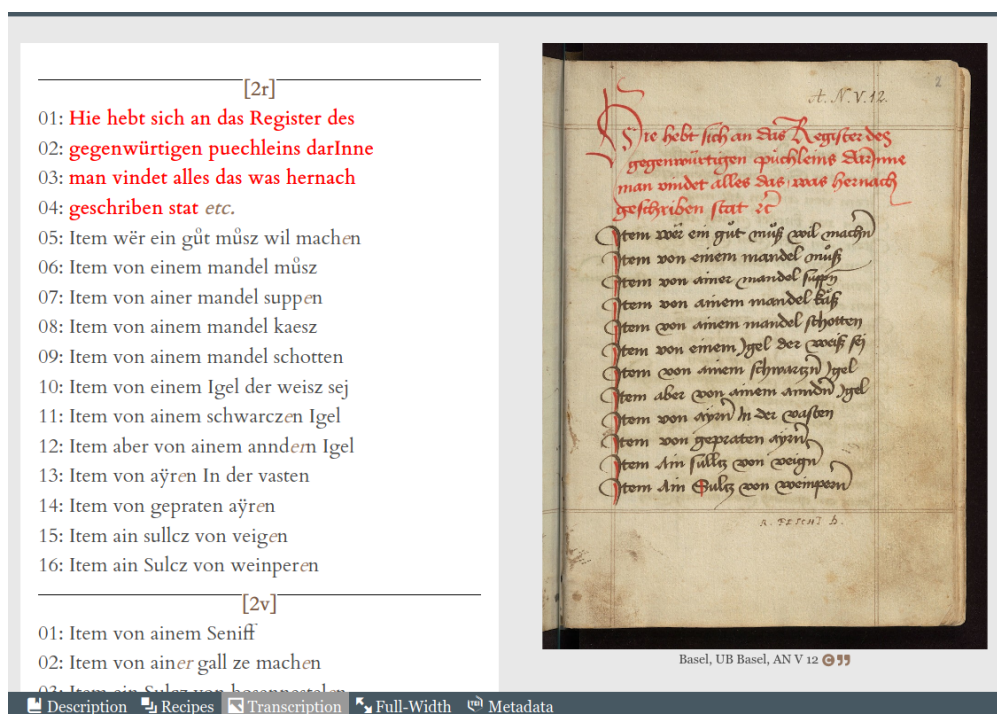 [2r]
01: Hie hebt sich an das Register des
02: gegenwürtigen puechleins darInne
03: man vindet alles das was hernach
04: geschriben stat etc.
05: Item wër ein gůt můsz wil machen
06: Item von einem mandel můsz
07: Item von ainer mandel suppen
08: Item von ainem mandel kaesz
09: Item von ainem mandel schotten
10: Item von einem Igel der weisz sej
11: Item von ainem schwarczen Igel
12: Item aber von ainem anndern Igel
13: Item von aÿren In der vasten
14: Item von gepraten aÿren
15: Item ain sullcz von veigen
16: Item ain Sulcz von weinperen
[2v]
01: Item von ainem Seniff
02: Item von ainer gall ze machen
03: Item ain Sulcz von hosennestelen
2
A. N. V. 12.
Hie hebt sich an das Register des
gegenwürtigen püchleins darInne
man vindet alles das was hernach
geschriben stat ꝛc
Item wër ein gůt můß wil machn
Item von einem mandel můß
Item von ainer mandel suppn
Item von ainem mandel käß
Item von ainem mandel schotten
Item von einem Igel der weiß sej
Item von ainem schwarczn Igel
Item aber von ainem anndn Igel
Item von aÿrn In der vasten
Item von gepraten aÿrn
Item Ain sullcz von veign
Item Ain Sulcz von weinpern
Basel, UB Basel, AN V 12
Description Recipes Transcription Full-Width Metadata